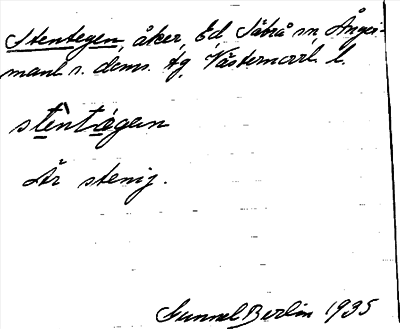 Stentegen, åker, Ed Säbrå sn, Ånger-
manl. s. doms. tg Västernorrl. l.
stèntégen
Är stenig.
Gunnel Berlin 1935